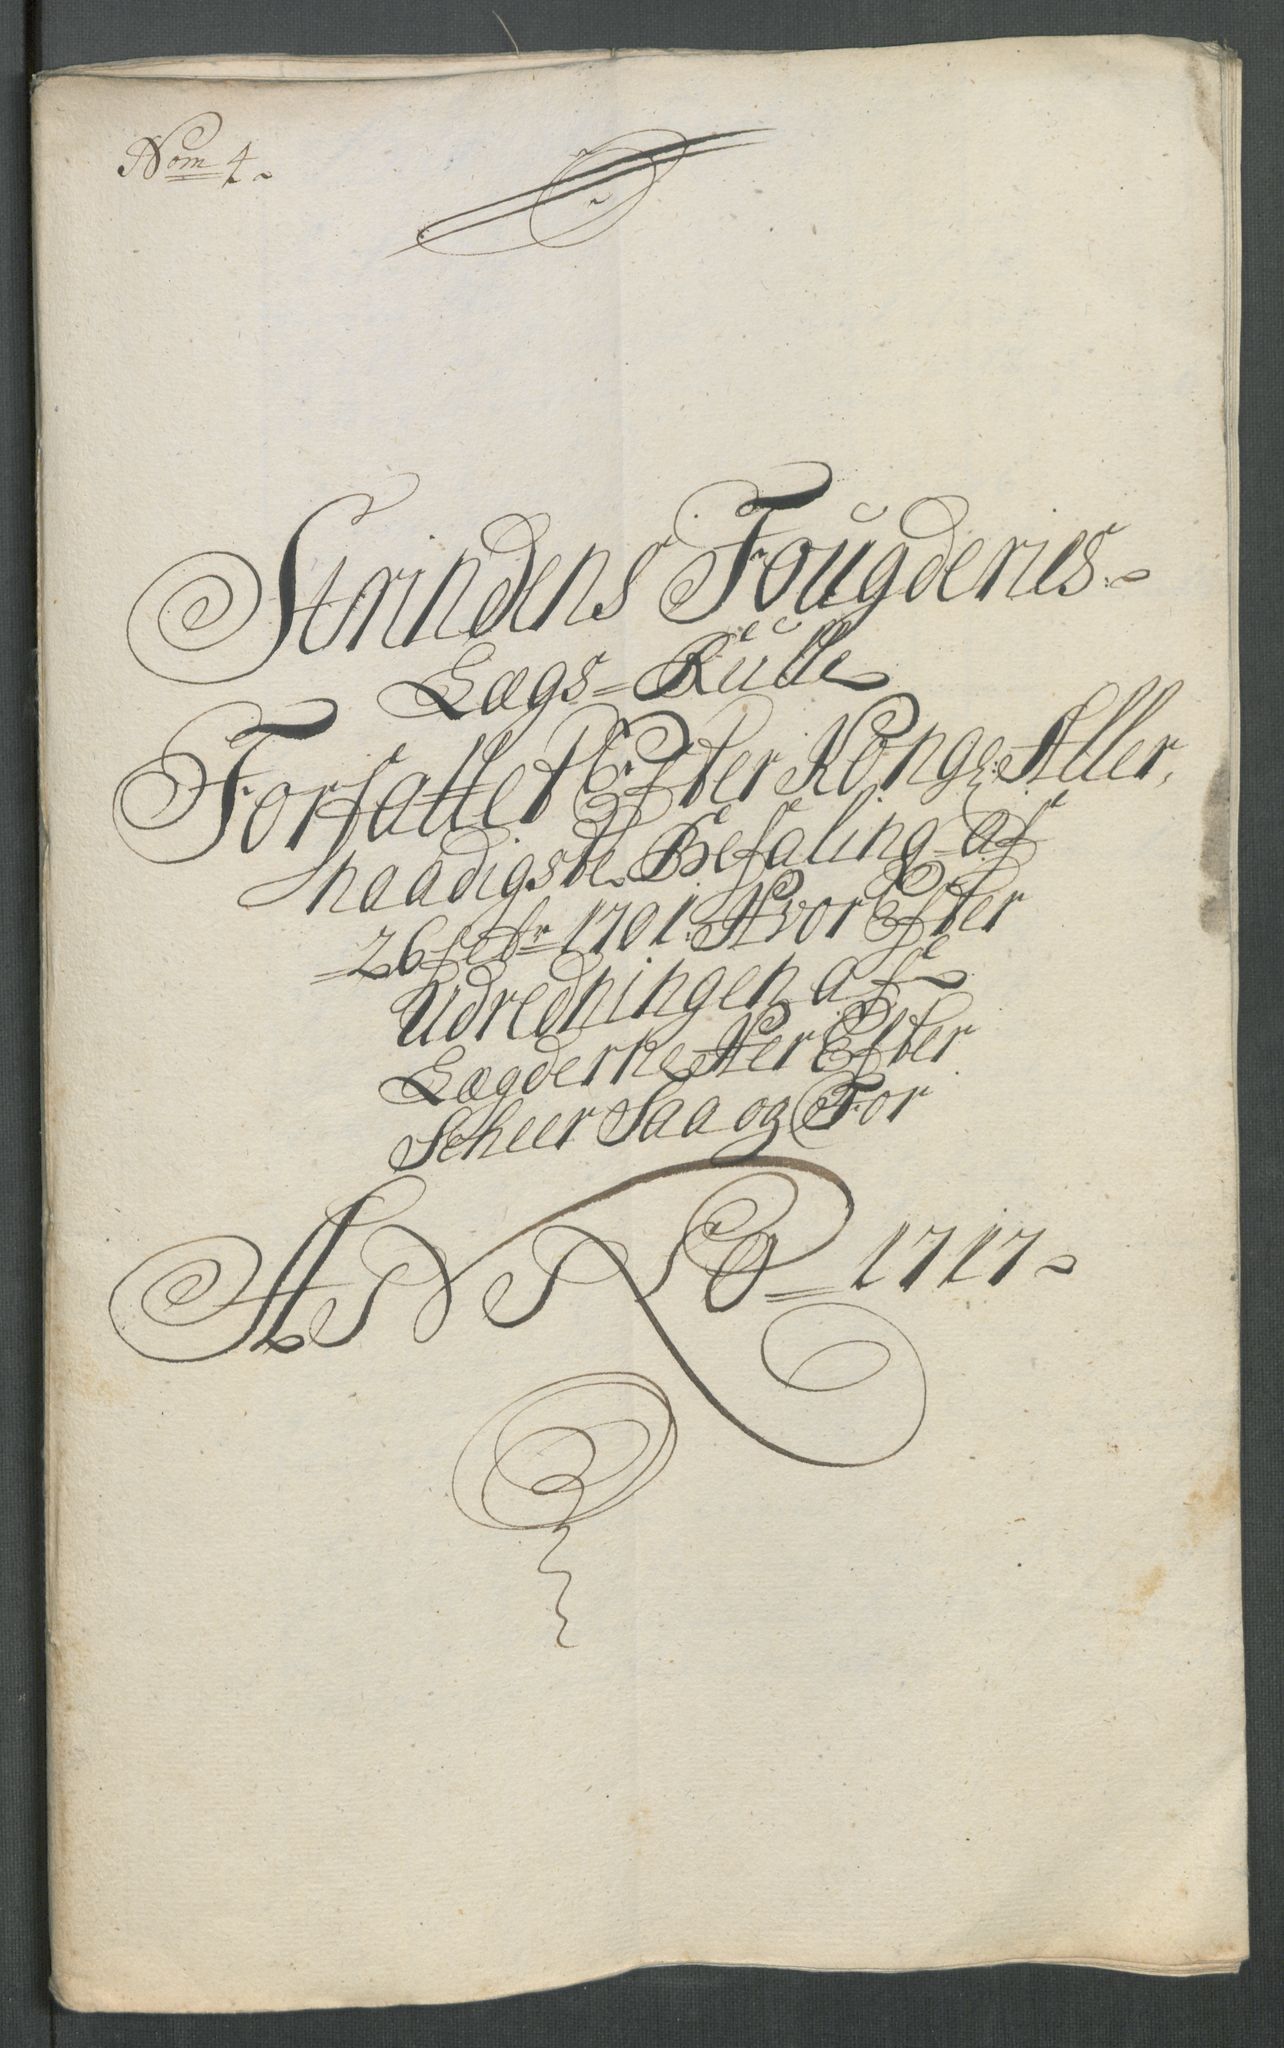 Nom 4.
Strindens Fougderies
Lægs=Rulle
Forfattet Efter Kongl: Aller,
naadigste Befaling af
26 febr 1701. Hvor Efter
Udredningen af
Lægderne Her Efter
Scheer Saa og For
ANNO=1717